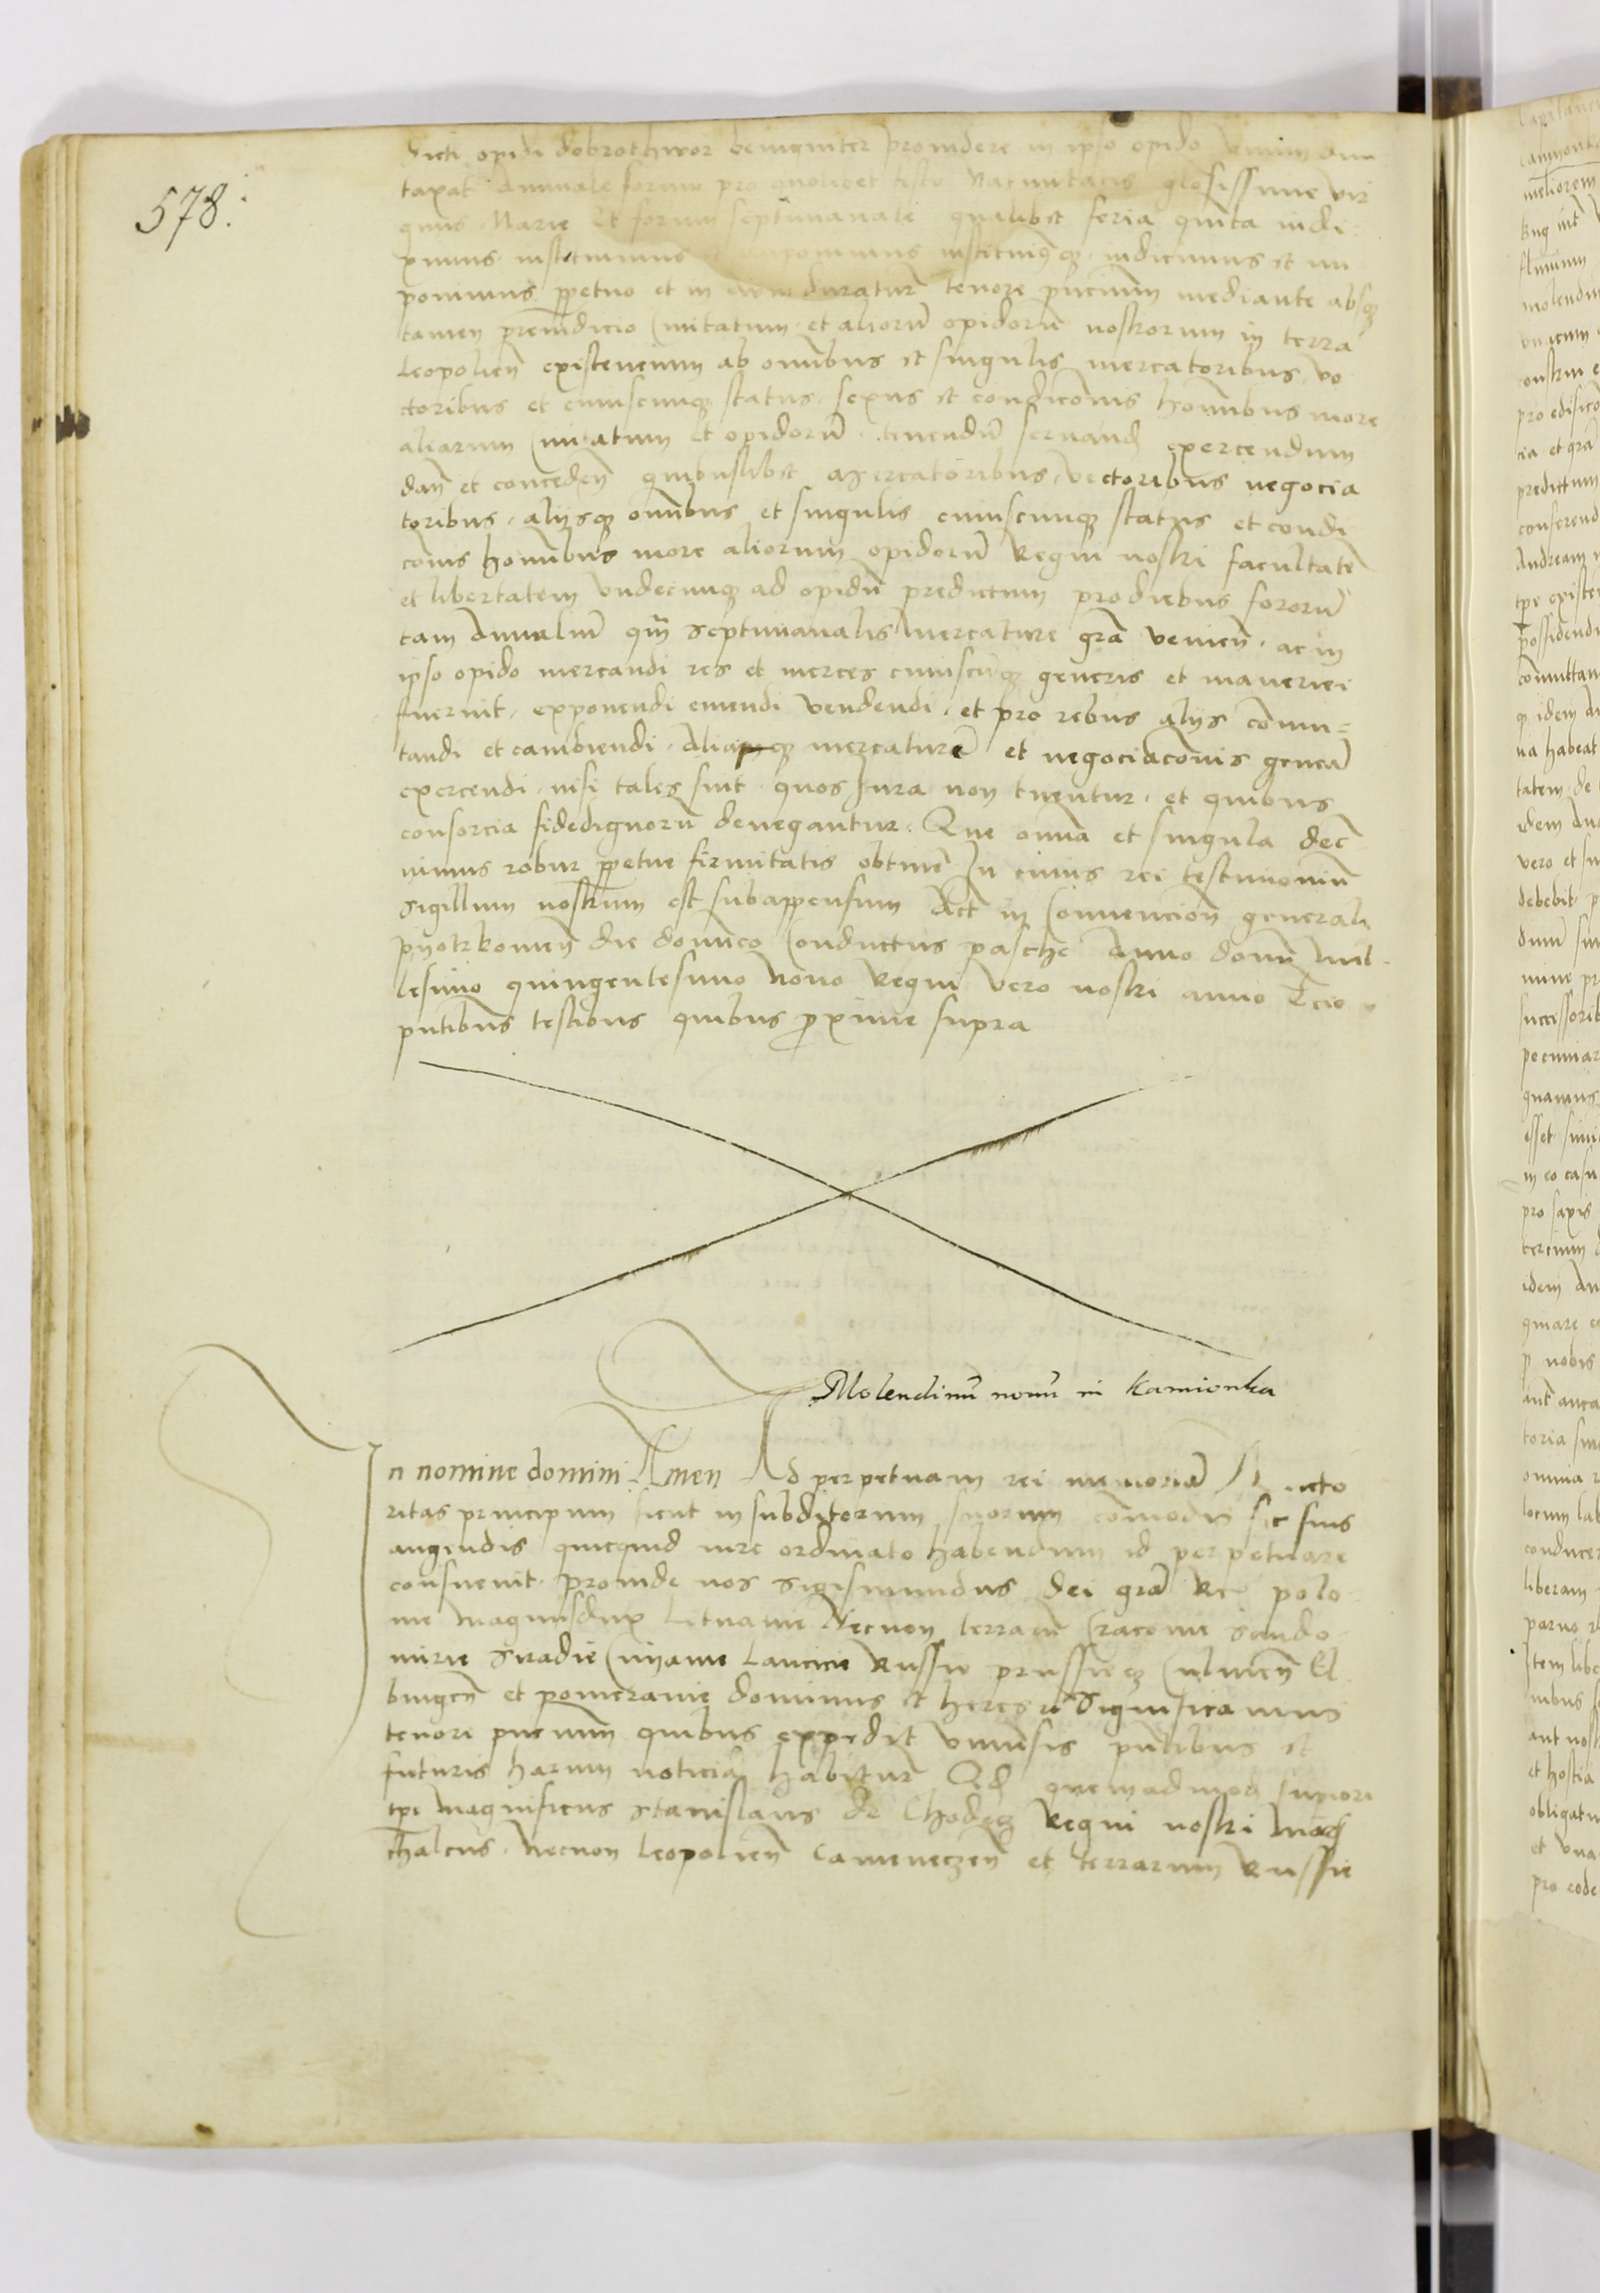 578.
dicti opidi dobrothwor benigniter providere in ipso opido unum dun
taxat Annuale forum pro quolibet festo Nativitatis glosissime vir
ginis Marie Et forum septimanale qualibet feria quinta indi
ximus instituimus et imponimus instituimusq indicimus et im
ponimus ppetuo et in evum duraturu tenore pncium mediante absq
tamen preiudicio Civitatum et alioru opidoru nostrorum in terra
Leopolien existencium ab omnibus et singulis mercatoribus ve
ctoribus et cuiuscunq status sexus et condiconis hominibus more
aliarum Civitatum et opidoru tenendu servand exercendum
dan et conceden quibuslibet mercatoribus vectoribus negocia
toribus alysq omnibus et singulis cuiuscunq status et condi
conis hominibus more aliorum opidoru Regni nostri facultate
et libertatem undecunq ad opidu predictum pro diebus fororu
tam Annaliu qm septimanalis mercature gra venien ac in
ipso opido mercandi res et merces cuiuscuq generis et maneriei
fuerint exponendi emendi vendendi et pro rebus alys comu=
tandi et cambiendi Aliaq mercature et negociaconis genera
exercendi nisi tales sint quos Jura non tuentur et quibus
consorcia fidedignoru denegantur Que omnia et singula dec
nimus robur ppetue firmitatis obtine In cuius rei testimoniu
sigillum nostrum est subappensum Act in Convencion generali
pyotrkovien die dominco Conductus pasche Anno domini mil
lesimo quingentesimo Nono Regni vero nostri anno Tcio
pntibus testibus quibus proxime supra
Molendinu novu in Kamionka
In nomine domini Amen Ad perpetuam rei memoria Aucto
ritas principum sicut in subditorum suorum comodis sic suis
augendis quicquid iure ordinato habendum id perpetuare
consuevit proinde nos Sigismundus dei gra Rex polo
nie magnusdux Lituanie Necnon terraru Cracovie Sando
mirie Siradie Cuyavie Lancicie Russie prussieq Culmen El
bingen et pomeranie dominus et heres Significamus
tenore pncium quibus expedit universis pntibus et
futuris harum noticia habitur Qd quemadmod supiori
tpe magnificus Stanislaus de Chodecz Regni nostri mars
chalcus Necnon Leopolien Cameneczen et terrarum Russie